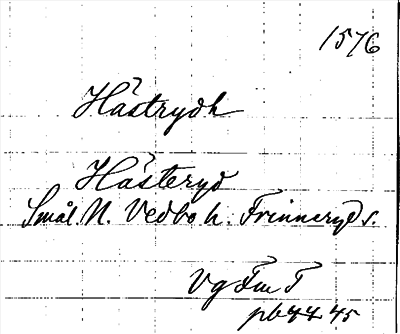 1576
Hästrydh
Hästeryd
Smål. N. Vedbo h. Frinneryds s.
Vg Fm T